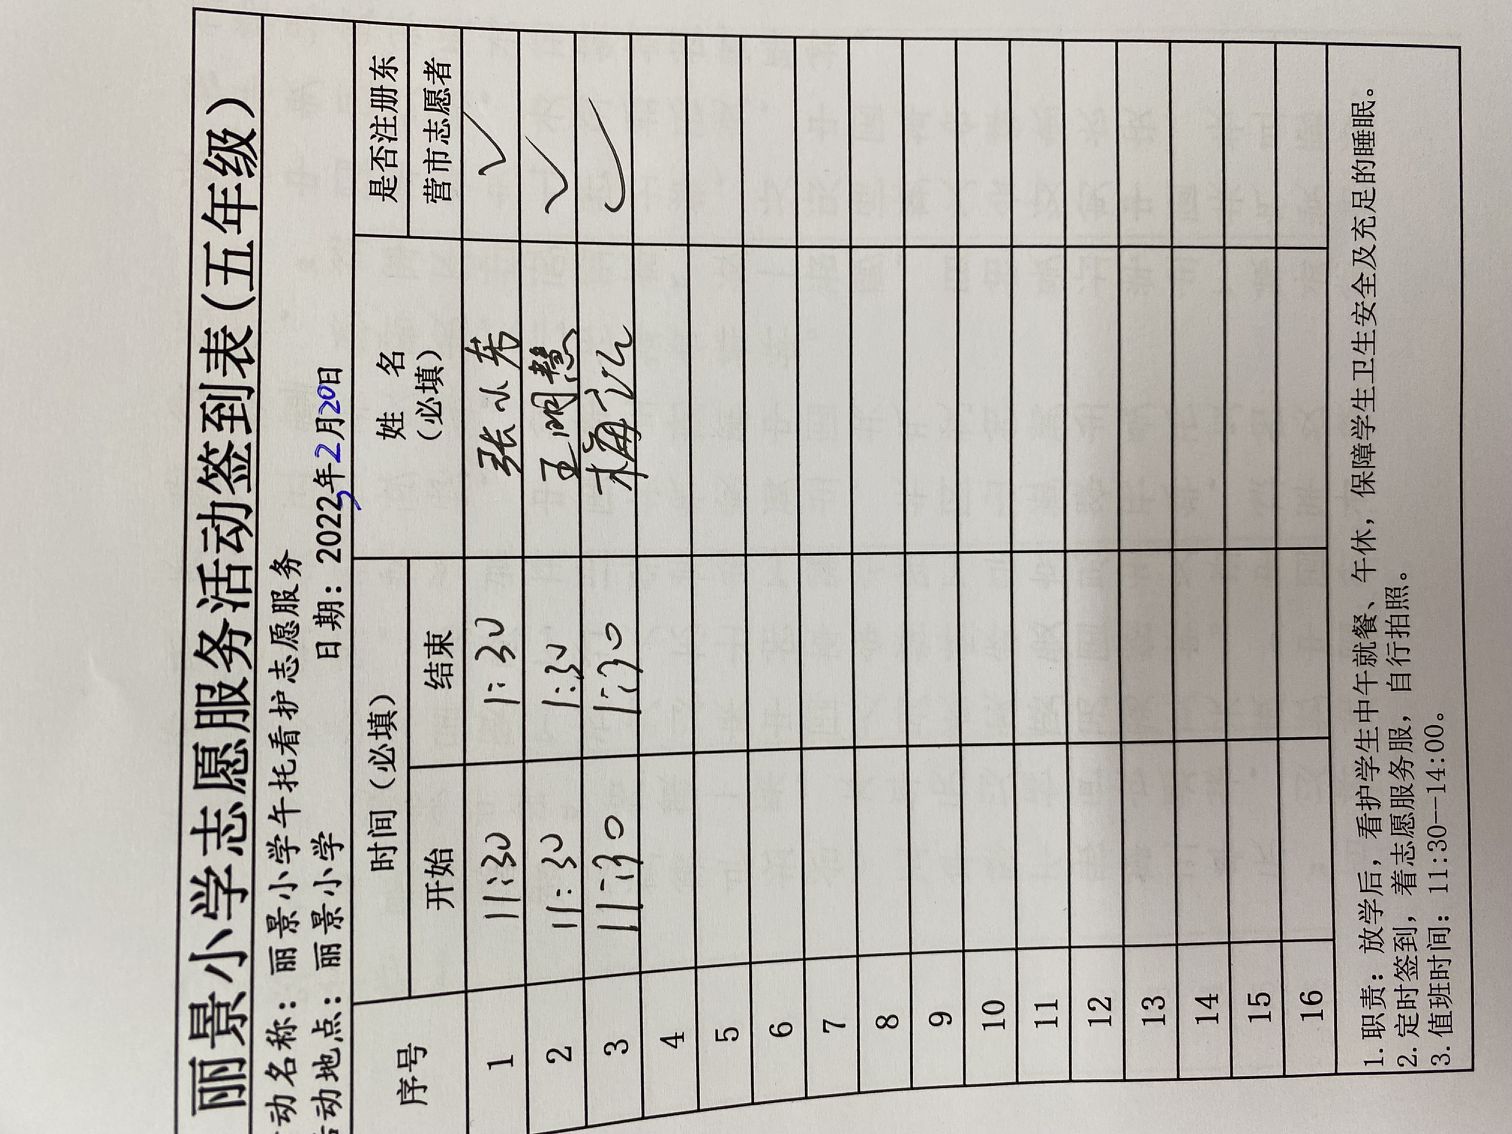 丽景小学志愿服务活动签到表(五年级)
动名称：丽景小学午托看护志愿服务
动地点：丽景小学 日期：2023年2月20日
序号 时间(必填) 姓名(必填) 是否注册东营市志愿者
开始 结束
1 11:30 1:30 张小东 ✓
2 11:30 1:30 王明慧 ✓
3 11:30 1:30 梅 ✓
4
5
6
7
8
9
10
11
12
13
14
15
16
1.职责：放学后，看护学生中午就餐、午休，保障学生卫生安全及充足的睡眠。
2.定时签到，着志愿服务服，自行拍照。
3.值班时间：11:30--14:00。